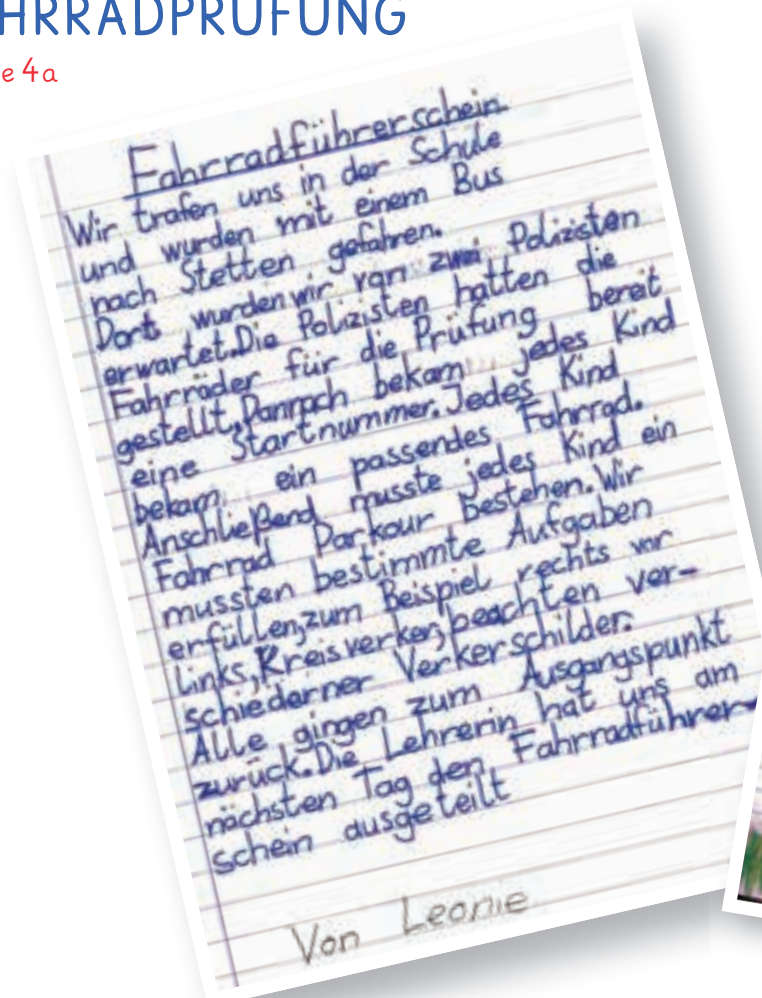 HRRADPRÜFUNG
e 4a
Fahrradführerschein
Wir trafen uns in der Schule
und wurden mit einem Bus
nach Stetten gefahren.
Dort wurden wir von zwei Polizisten
erwartet. Die Polizisten hatten die
Fahrräder für die Prüfung bereit
gestellt. Dannach bekam jedes Kind
eine Startnummer. Jedes Kind
bekam ein passendes Fahrrad.
Anschließend musste jedes Kind ein
Fahrrad Parkour bestehen. Wir
mussten bestimmte Aufgaben
erfüllen, zum Beispiel rechts vor
Links, Kreisverker, beachten ver-
schiederner Verkerschilder.
Alle gingen zum Ausgangspunkt
zurück. Die Lehrerin hat uns am
nächsten Tag den Fahrradführer-
schein ausgeteilt
Von Leonie